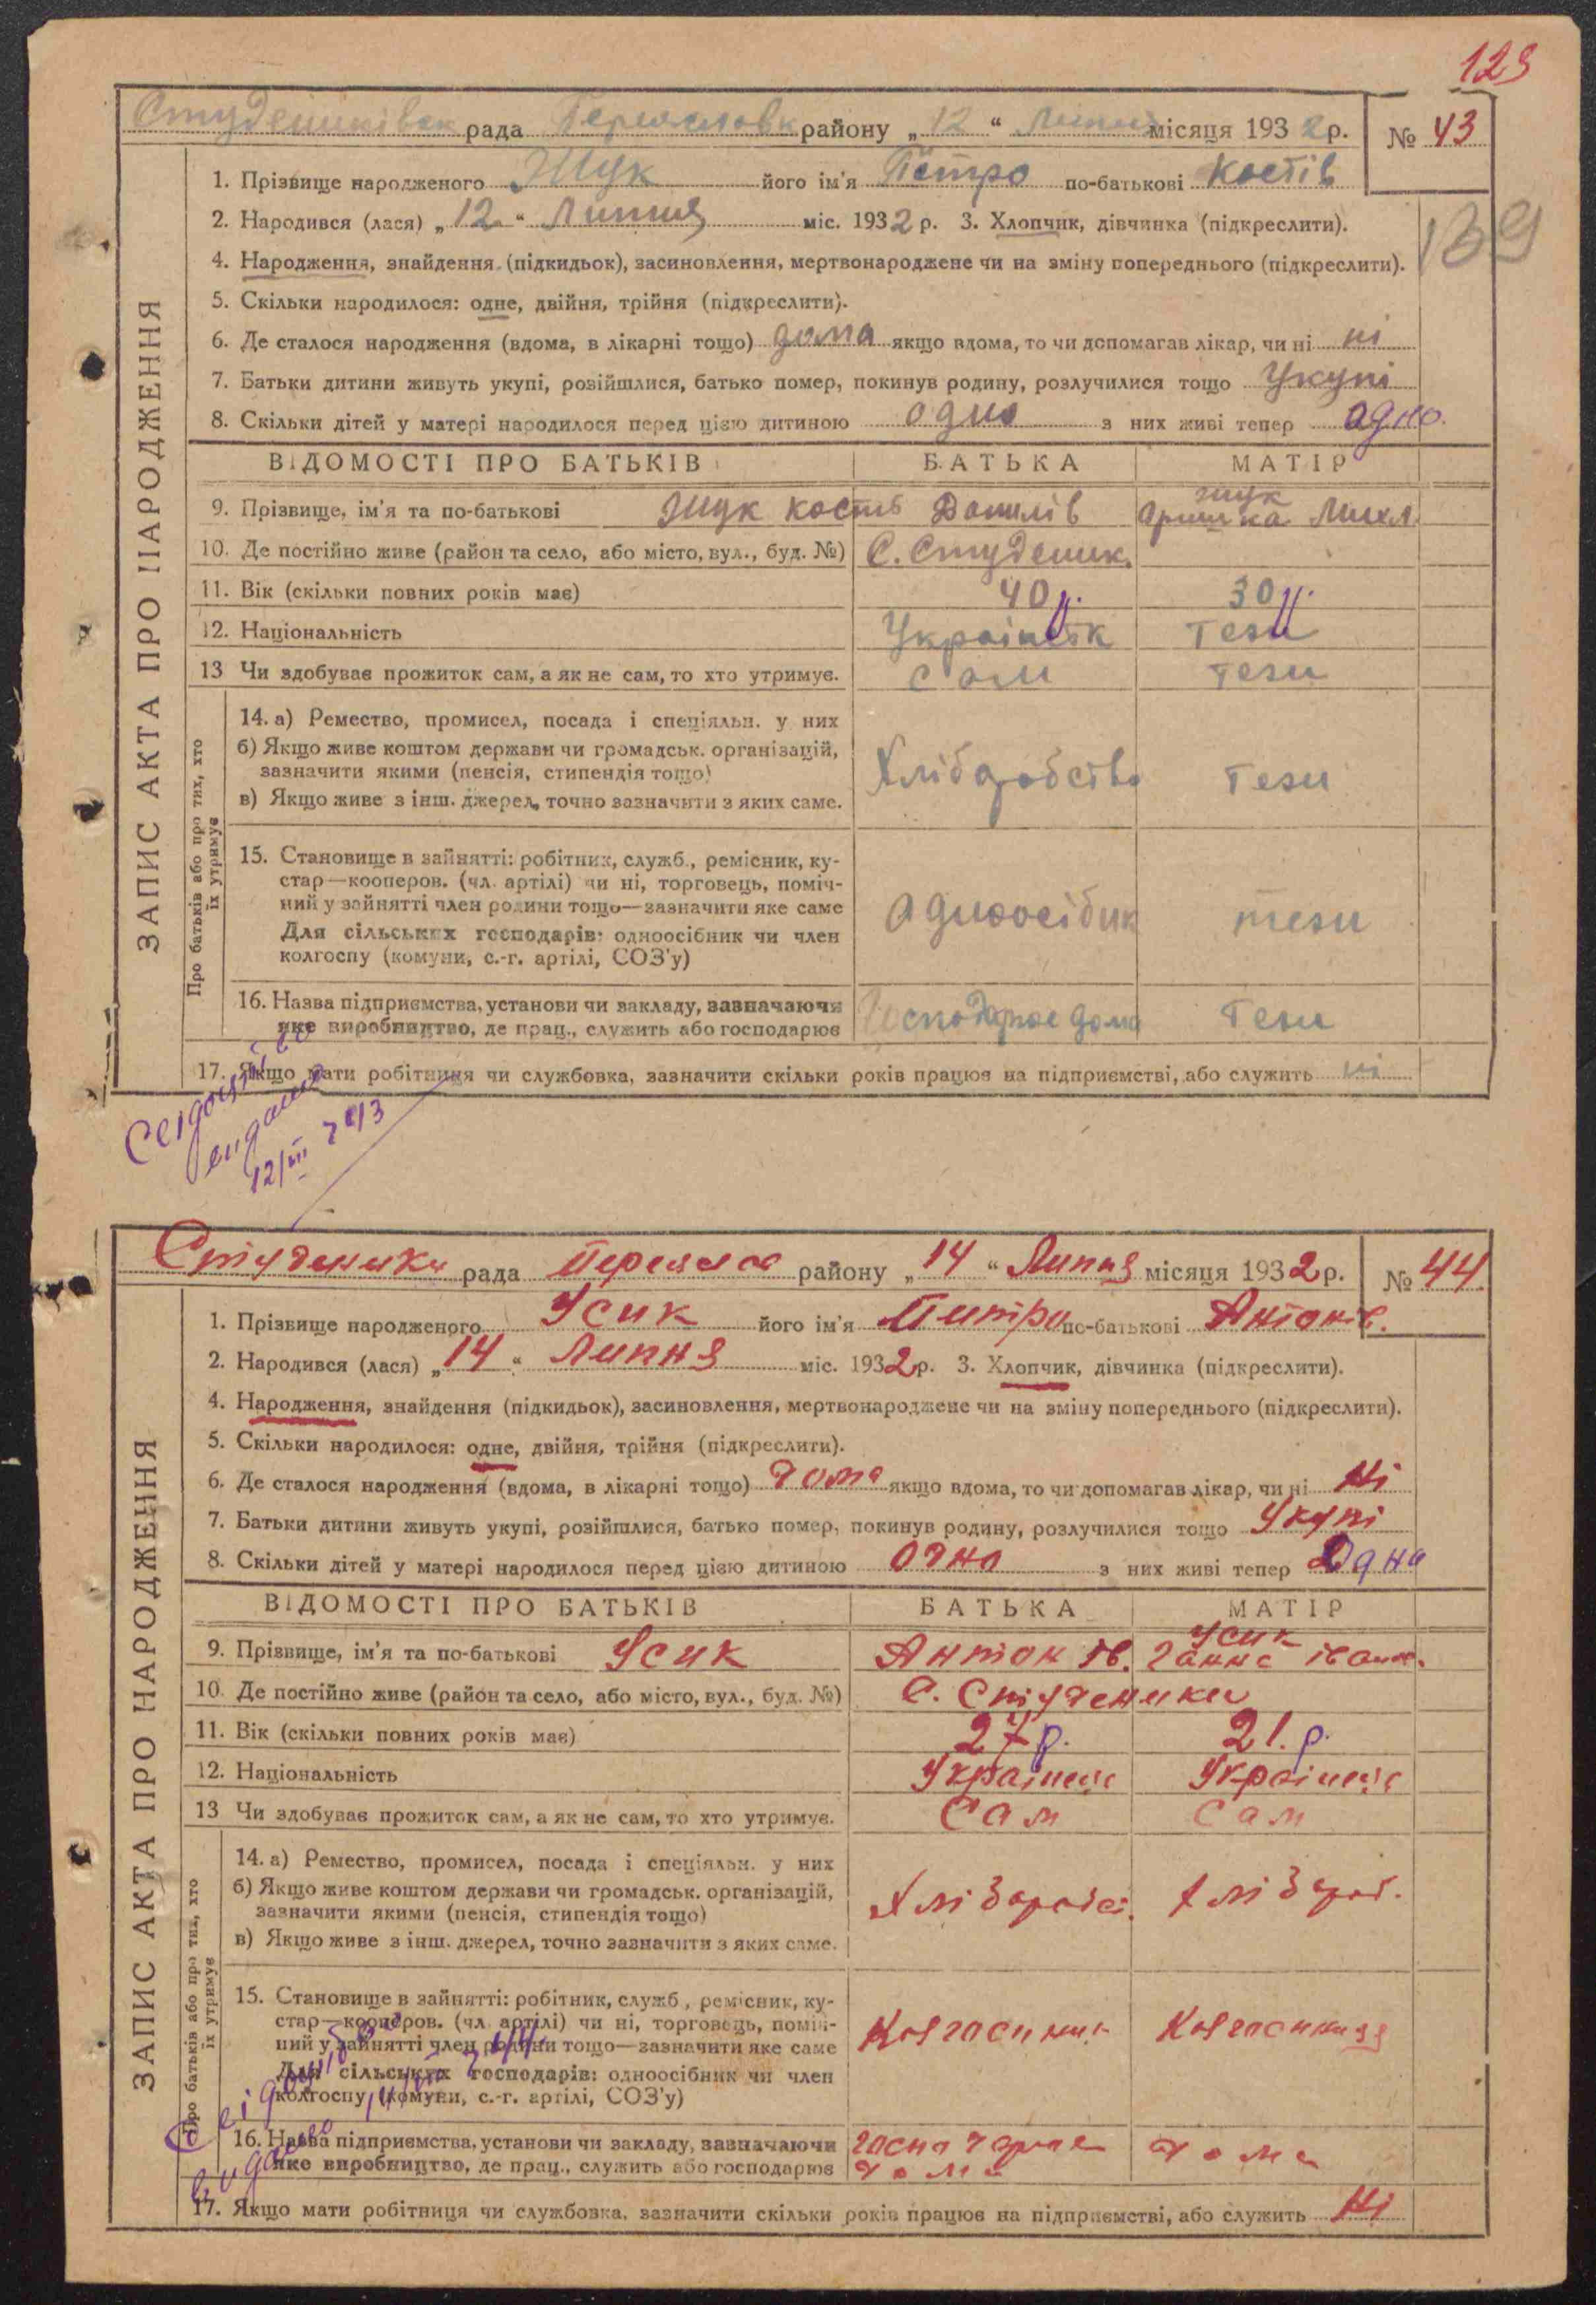 129
Студениківск рада Переяславск району „12“ Липня місяця 1932 р. № 43
139
ЗАПИС АКТА ПРО НАРОДЖЕННЯ
1. Прізвище народженого Жук його ім'я Петро по-батькові Костів
2. Народився (лася) „12“ Липня міс. 1932 р. 3. Хлопчик, дівчинка (підкреслити).
4. Народження, знайдення (підкидьок), засиновлення, мертвонароджене чи на зміну попереднього (підкреслити).
5. Скільки народилося: одне, двійня, трійня (підкреслити).
6. Де сталося народження (вдома, в лікарні тощо) дома якщо вдома, то чи допомагав лікар, чи ні ні
7. Батьки дитини живуть укупі, розійшлися, батько помер, покинув родину, розлучилися тощо Укупі
8. Скільки дітей у матері народилося перед цією дитиною одно з них живі тепер одно.
ВІДОМОСТІ ПРО БАТЬКІВ БАТЬКА МАТІР
9. Прізвище, ім'я та по-батькові Жук Кость Данилів Жук Оришка Михл.
10. Де постійно живе (район та село, або місто, вул., буд. №) С. Студеник.
11. Вік (скільки повних років має) 40 р. 30 р.
12. Національність Українск тези
13 Чи здобуває прожиток сам, а як не сам, то хто утримує. сам тези
Про батьків або про тих, хто їх утримує
14. а) Ремество, промисел, посада і спеціяльн. у них
б) Якщо живе коштом держави чи громадськ. організацій,
зазначити якими (пенсія, стипендія тощо)
в) Якщо живе з інш. джерел, точно зазначити з яких саме.
Хліборобство тези
15. Становище в зайнятті: робітник, служб., ремісник, ку-
стар—кооперов. (чл. артілі) чи ні, торговець, поміч-
ний у зайнятті член родини тощо—зазначити яке саме
Для сільських господарів: одноосібник чи член
колгоспу (комуни, с.-г. артілі, СОЗ'у)
одноосібник тези
16. Назва підприємства, установи чи закладу, зазначаючи
яке виробництво, де прац., служить або господарює
Господарює дома тези
17. Якщо мати робітниця чи службовка, зазначити скільки років працює на підприємстві, або служить ні
Свідоцтво
видано
12/VII 743
Студеники рада Переяслов району „14“ Липня місяця 1932 р. № 44.
ЗАПИС АКТА ПРО НАРОДЖЕННЯ
1. Прізвище народженого Усик його ім'я Питро по-батькові Антонів.
2. Народився (лася) „14“ Липня міс. 1932 р. 3. Хлопчик, дівчинка (підкреслити).
4. Народження, знайдення (підкидьок), засиновлення, мертвонароджене чи на зміну попереднього (підкреслити).
5. Скільки народилося: одне, двійня, трійня (підкреслити).
6. Де сталося народження (вдома, в лікарні тощо) дома якщо вдома, то чи допомагав лікар, чи ні Ні
7. Батьки дитини живуть укупі, розійшлися, батько помер, покинув родину, розлучилися тощо Укупі
8. Скільки дітей у матері народилося перед цією дитиною одна з них живі тепер Одна
ВІДОМОСТІ ПРО БАТЬКІВ БАТЬКА МАТІР
9. Прізвище, ім'я та по-батькові Усик Антон Ів. Усик Ганна Іван.
10. Де постійно живе (район та село, або місто, вул., буд. №) С. Студеники
11. Вік (скільки повних років має) 27 р. 21. р.
12. Національність Українець Українець
13 Чи здобуває прожиток сам, а як не сам, то хто утримує. Сам Сам
Про батьків або про тих, хто їх утримує
14. а) Ремество, промисел, посада і спеціяльн. у них
б) Якщо живе коштом держави чи громадськ. організацій,
зазначити якими (пенсія, стипендія тощо)
в) Якщо живе з інш. джерел, точно зазначити з яких саме.
Хлібороб. Хлібороб.
15. Становище в зайнятті: робітник, служб., ремісник, ку-
стар—кооперов. (чл. артілі) чи ні, торговець, поміч-
ний у зайнятті член родини тощо—зазначити яке саме
Для сільських господарів: одноосібник чи член
колгоспу (комуни, с.-г. артілі, СОЗ'у)
Колгосиник Колгосиниця
Свідоцтво
видано
14/VII 744
16. Назва підприємства, установи чи закладу, зазначаючи
яке виробництво, де прац., служить або господарює
господарює дома дома
17. Якщо мати робітниця чи службовка, зазначити скільки років працює на підприємстві, або служить Ні